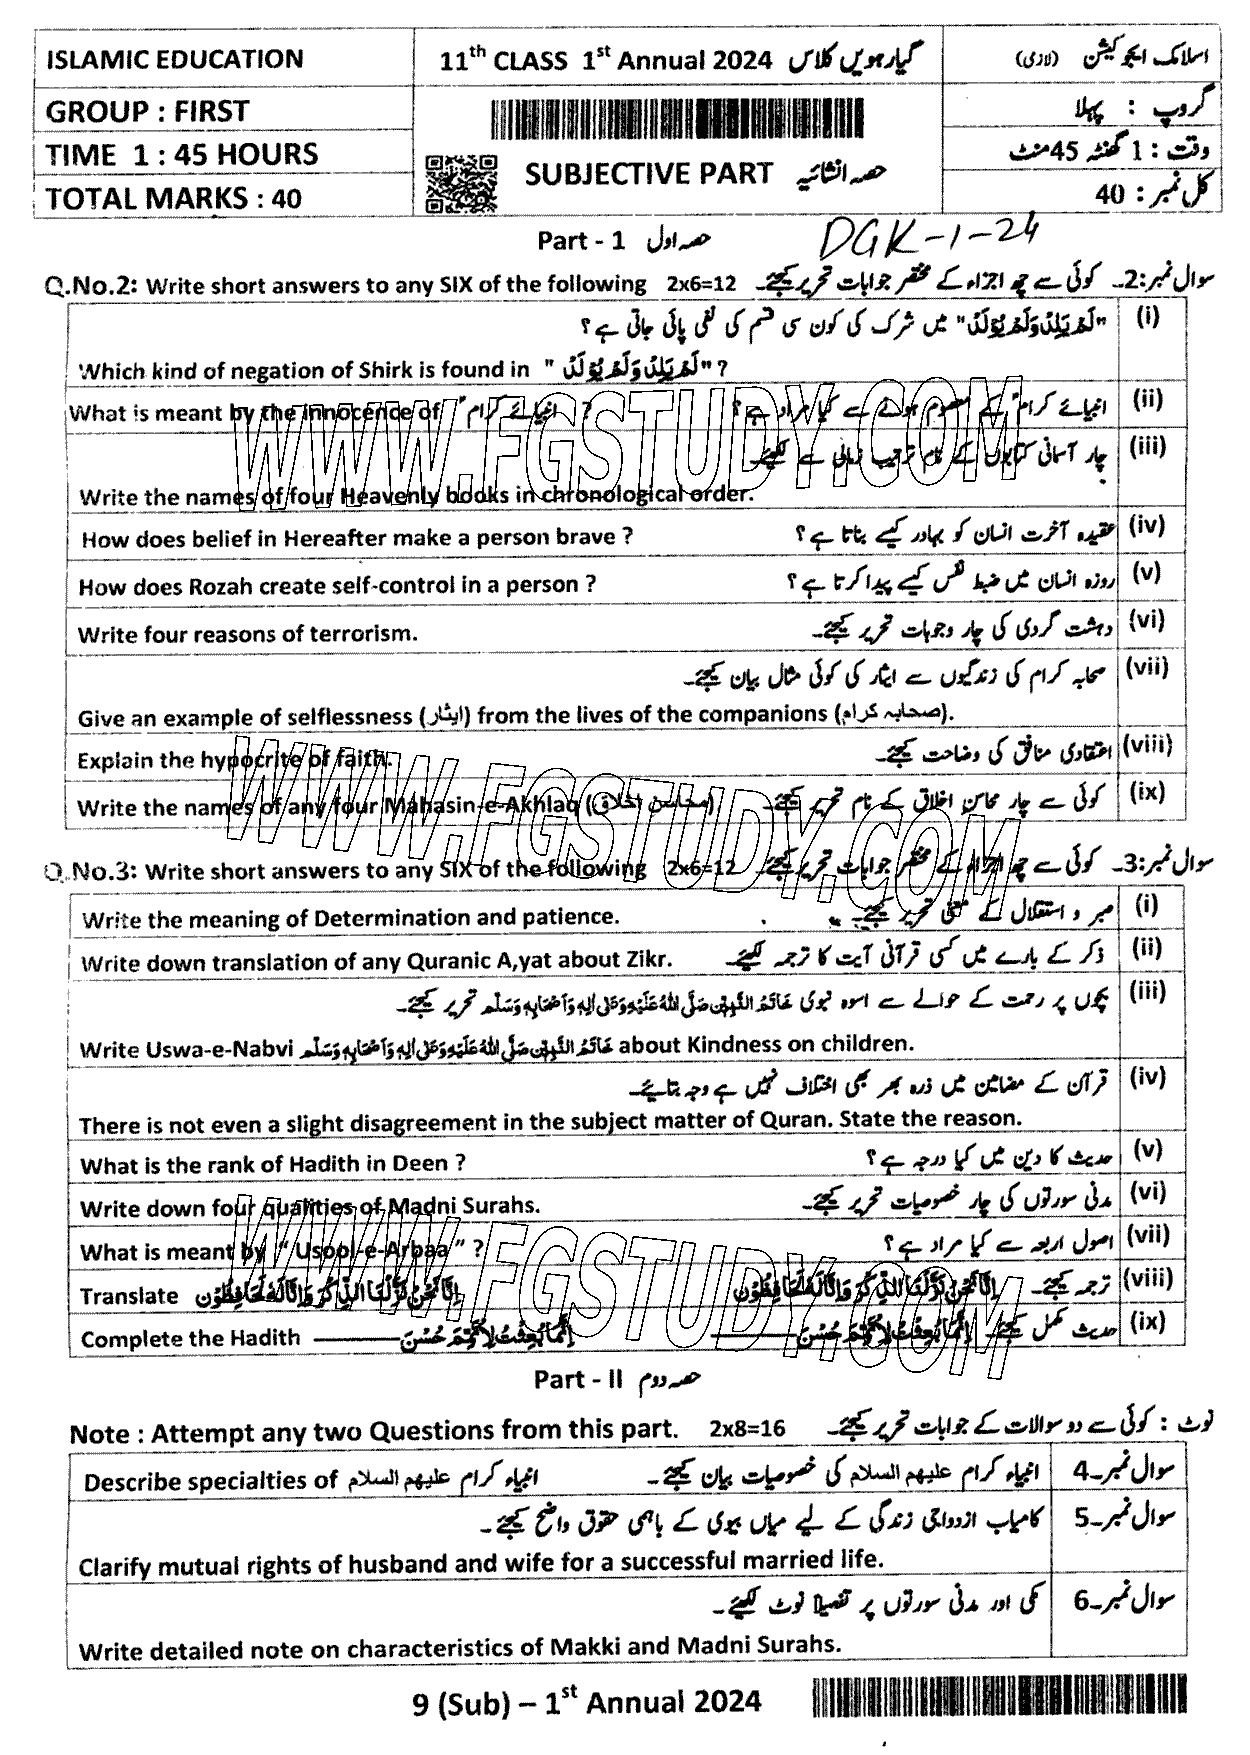 ISLAMIC EDUCATION
11th CLASS 1st Annual 2024 گیارہویں کلاس
اسلامک ایجوکیشن (لازمی)
GROUP : FIRST
گروپ : پہلا
TIME 1 : 45 HOURS
SUBJECTIVE PART حصہ انشائیہ
وقت : 1 گھنٹہ 45 منٹ
TOTAL MARKS : 40
کل نمبر : 40
Part - 1 حصہ اول DGK-1-24
Q.No.2: Write short answers to any SIX of the following 2x6=12 سوال نمبر:2۔ کوئی سے چھ اجزاء کے مختصر جوابات تحریر کیجئے۔
(i) "لَمْ یَلِدْ وَلَمْ یُوْلَدْ" میں شرک کی کون سی قسم کی نفی پائی جاتی ہے؟
Which kind of negation of Shirk is found in "لَمْ یَلِدْ وَلَمْ یُوْلَدْ" ?
What is meant by the innocence of انبیائے کرامؑ ? (ii) انبیائے کرامؑ کے معصوم ہونے سے کیا مراد ہے؟
(iii) چار آسمانی کتابوں کے نام ترتیب زمانی سے لکھیئے۔
Write the names of four Heavenly books in chronological order.
How does belief in Hereafter make a person brave ? (iv) عقیدہ آخرت انسان کو بہادر کیسے بناتا ہے؟
How does Rozah create self-control in a person ? (v) روزہ انسان میں ضبط نفس کیسے پیدا کرتا ہے؟
Write four reasons of terrorism. (vi) دہشت گردی کی چار وجوہات تحریر کیجئے۔
(vii) صحابہ کرام کی زندگیوں سے ایثار کی کوئی مثال بیان کیجئے۔
Give an example of selflessness (ایثار) from the lives of the companions (صحابہ کرام).
Explain the hypocrite of faith. (viii) اعتقادی منافق کی وضاحت کیجئے۔
Write the names of any four Mahasin-e-Akhlaq (محاسن اخلاق). (ix) کوئی سے چار محاسن اخلاق کے نام تحریر کیجئے۔
Q.No.3: Write short answers to any SIX of the following 2x6=12 سوال نمبر:3۔ کوئی سے چھ اجزاء کے مختصر جوابات تحریر کیجئے۔
Write the meaning of Determination and patience. (i) صبر و استقلال کے معنی تحریر کیجئے۔
Write down translation of any Quranic A,yat about Zikr. (ii) ذکر کے بارے میں کسی قرآنی آیت کا ترجمہ لکھیئے۔
(iii) بچوں پر رحمت کے حوالے سے اسوہ نبوی خَاتَمُ النَّبِیّٖنَ صَلَّی اللہُ عَلَیْہِ وَعَلٰی اٰلِہٖ وَاَصْحَابِہٖ وَسَلَّم تحریر کیجئے۔
Write Uswa-e-Nabvi خَاتَمُ النَّبِیّٖنَ صَلَّی اللہُ عَلَیْہِ وَعَلٰی اٰلِہٖ وَاَصْحَابِہٖ وَسَلَّم about Kindness on children.
(iv) قرآن کے مضامین میں ذرہ بھر بھی اختلاف نہیں ہے وجہ بتایئے۔
There is not even a slight disagreement in the subject matter of Quran. State the reason.
What is the rank of Hadith in Deen ? (v) حدیث کا دین میں کیا درجہ ہے؟
Write down four qualities of Madni Surahs. (vi) مدنی سورتوں کی چار خصوصیات تحریر کیجئے۔
What is meant by " Usool-e-Arbaa " ? (vii) اصول اربعہ سے کیا مراد ہے؟
Translate اِنَّا نَحْنُ نَزَّلْنَا الذِّكْرَ وَاِنَّا لَهٗ لَحَافِظُوْن (viii) ترجمہ کیجئے۔ اِنَّا نَحْنُ نَزَّلْنَا الذِّكْرَ وَاِنَّا لَهٗ لَحَافِظُوْن
Complete the Hadith اِنَّمَا بُعِثْتُ لِاُتَمِّمَ حُسْنَ (ix) حدیث مکمل کیجئے۔ اِنَّمَا بُعِثْتُ لِاُتَمِّمَ حُسْنَ
Part - II حصہ دوم
Note : Attempt any two Questions from this part. 2x8=16 نوٹ : کوئی سے دو سوالات کے جوابات تحریر کیجئے۔
Describe specialties of انبیاء کرام علیہم السلام سوال نمبر۔4 انبیاء کرام علیہم السلام کی خصوصیات بیان کیجئے۔
سوال نمبر۔5 کامیاب ازدواجی زندگی کے لیے میاں بیوی کے باہمی حقوق واضح کیجئے۔
Clarify mutual rights of husband and wife for a successful married life.
سوال نمبر۔6 مکی اور مدنی سورتوں پر تفصیلا نوٹ لکھیئے۔
Write detailed note on characteristics of Makki and Madni Surahs.
9 (Sub) – 1st Annual 2024
WWW.FGSTUDY.COM
WWW.FGSTUDY.COM
WWW.FGSTUDY.COM